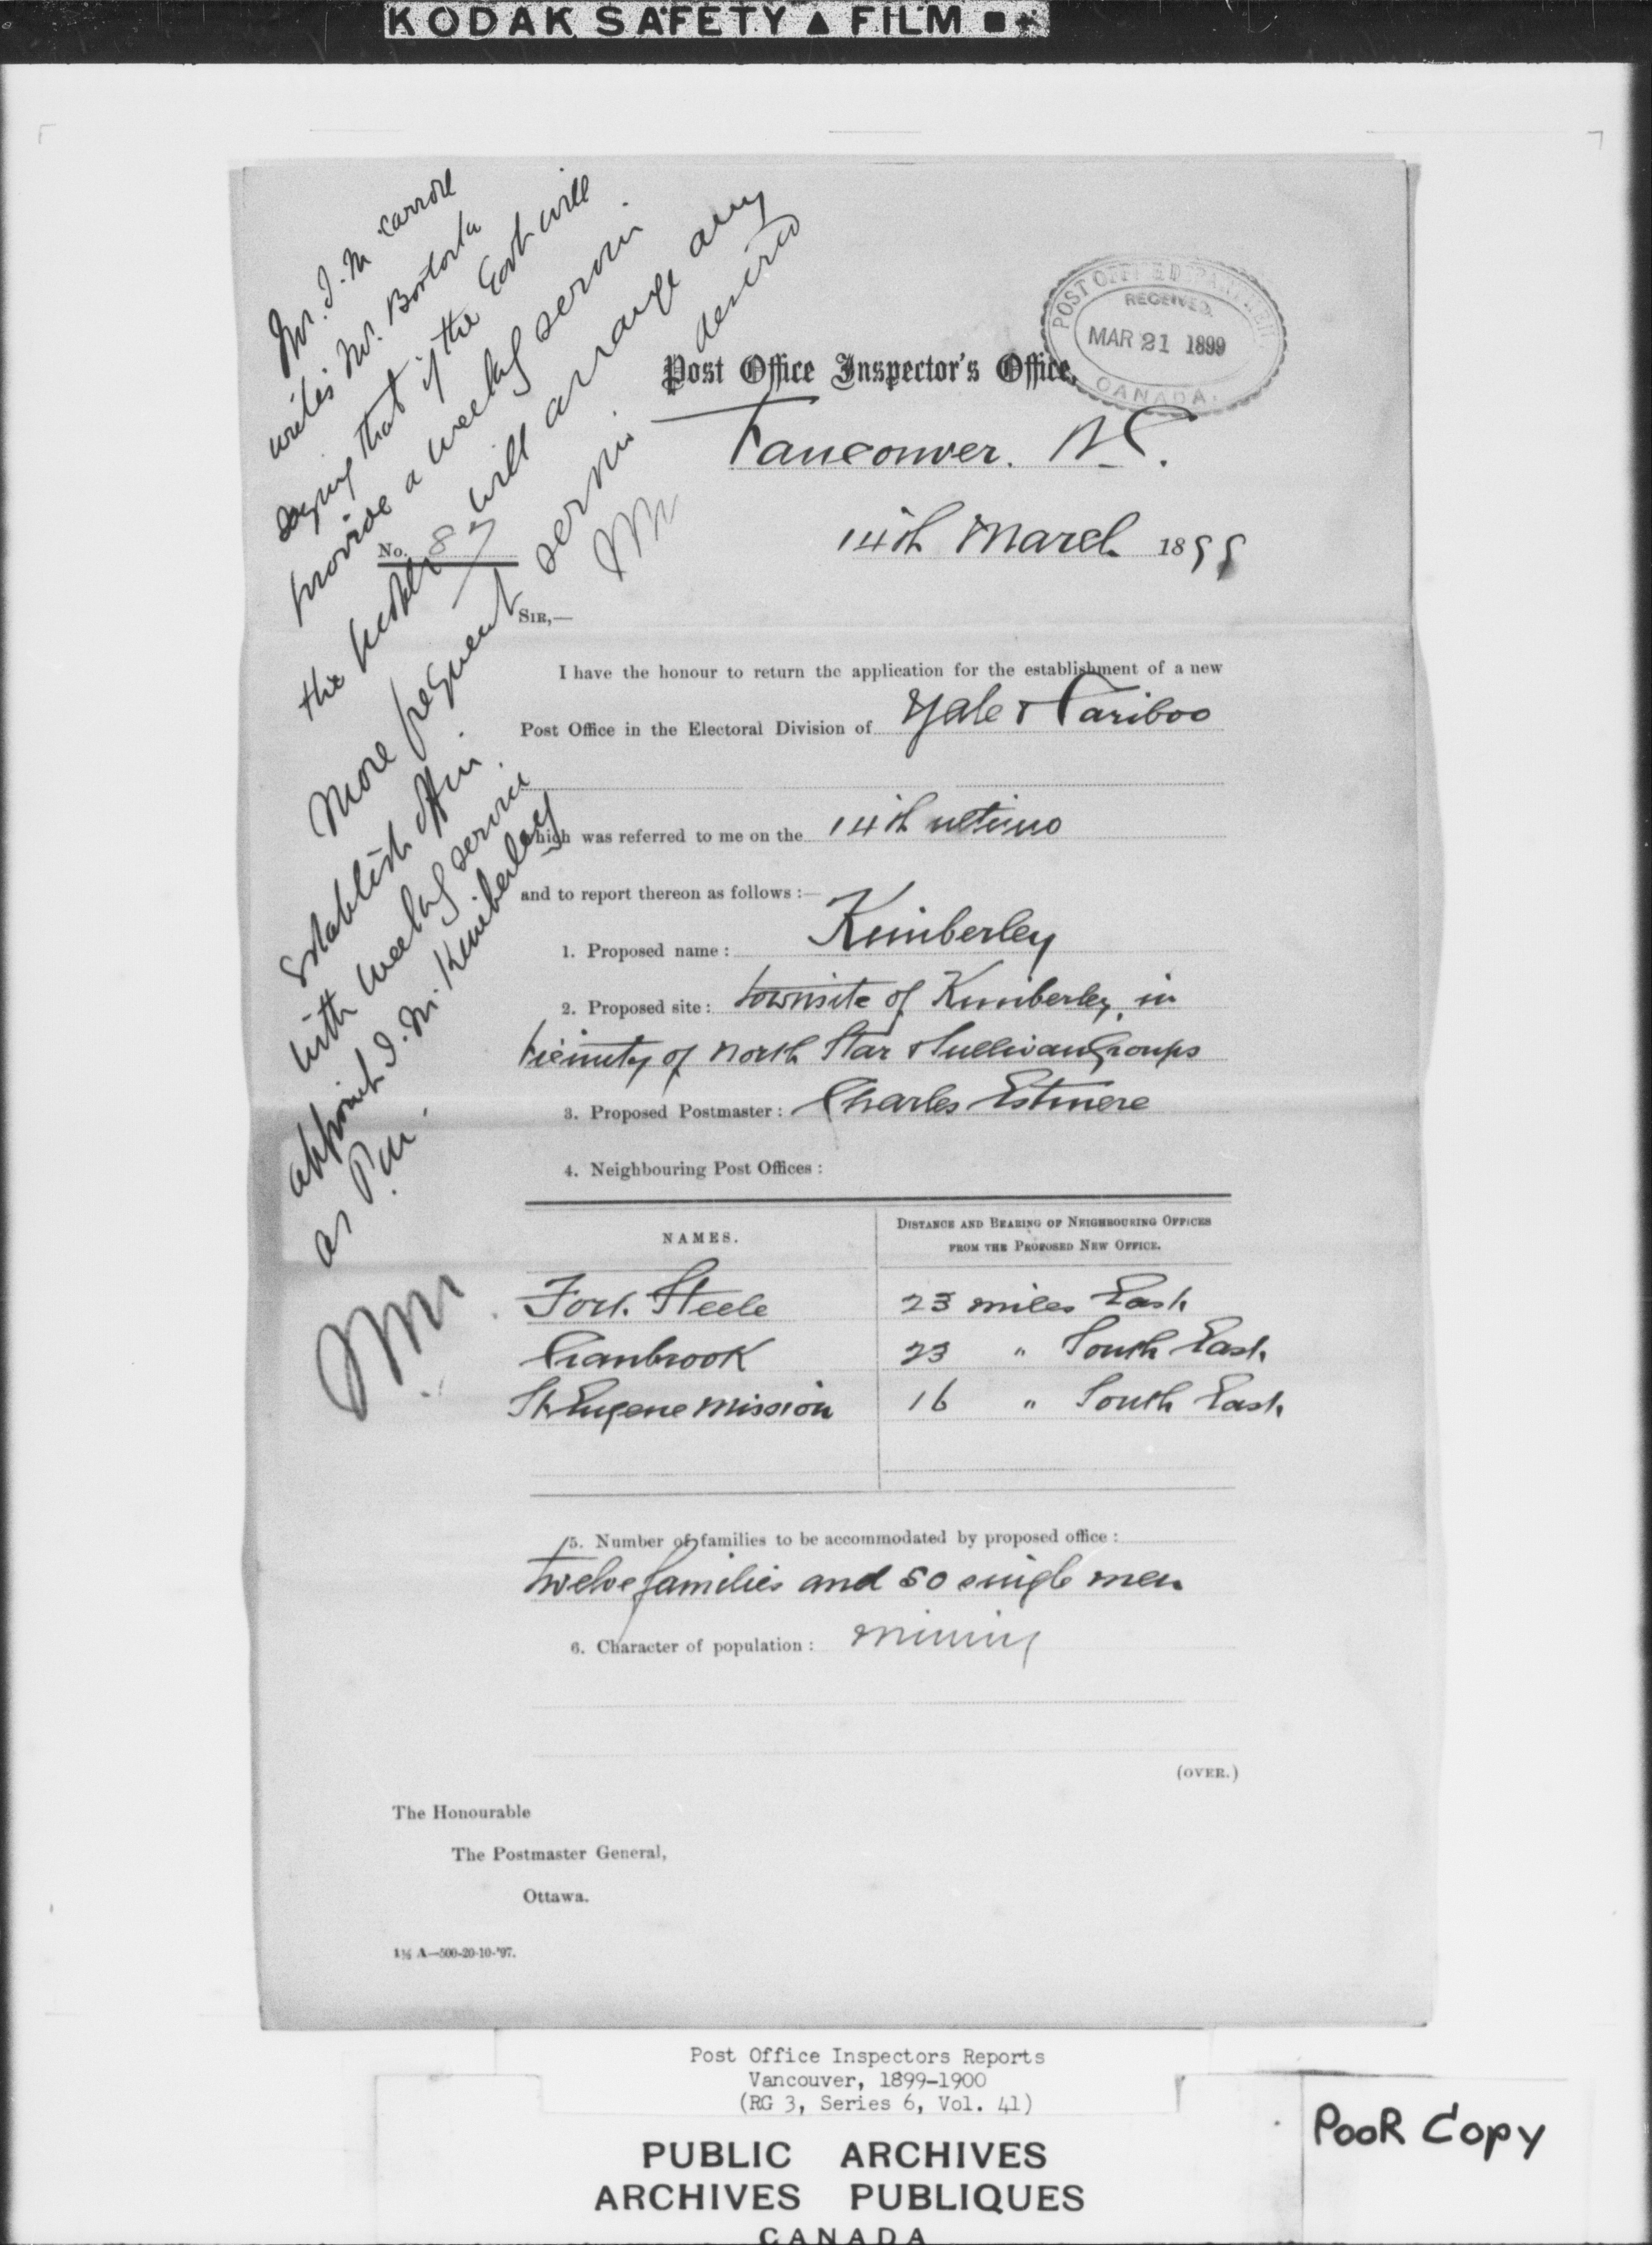 KODAK SAFETY ▲ FILM
Mr. J. M Carroll
writes Mr. Bostock
saying that if the Govt will
provide a weekly service
the people will arrange any
more frequent service desired
Establish office
with weekly service
appoint J. M. Kimberley
as P.M.
POST OFFICE DEPARTMENT
RECEIVED
MAR 21 1899
CANADA.
Post Office Inspector's Office,
Vancouver. B.C.
14th March 1899
No. 87
SIR,—
I have the honour to return the application for the establishment of a new
Post Office in the Electoral Division of Yale & Cariboo
which was referred to me on the 14th ultimo
and to report thereon as follows :—
1. Proposed name : Kimberley
2. Proposed site : townsite of Kimberley, in
vicinity of North Star & Sullivan Groups
3. Proposed Postmaster : Charles Estmere
4. Neighbouring Post Offices :
NAMES.
DISTANCE AND BEARING OF NEIGHBOURING OFFICES
FROM THE PROPOSED NEW OFFICE.
Fort Steele 23 miles East
Cranbrook 23 " South East
St. Eugene Mission 16 " South East
5. Number of families to be accommodated by proposed office :
twelve families and 50 single men
6. Character of population : mining
(OVER.)
The Honourable
The Postmaster General,
Ottawa.
1½ A—500-20-10-'97.
Post Office Inspectors Reports
Vancouver, 1899-1900
(RG 3, Series 6, Vol. 41)
PUBLIC ARCHIVES
ARCHIVES PUBLIQUES
CANADA
POOR COPY